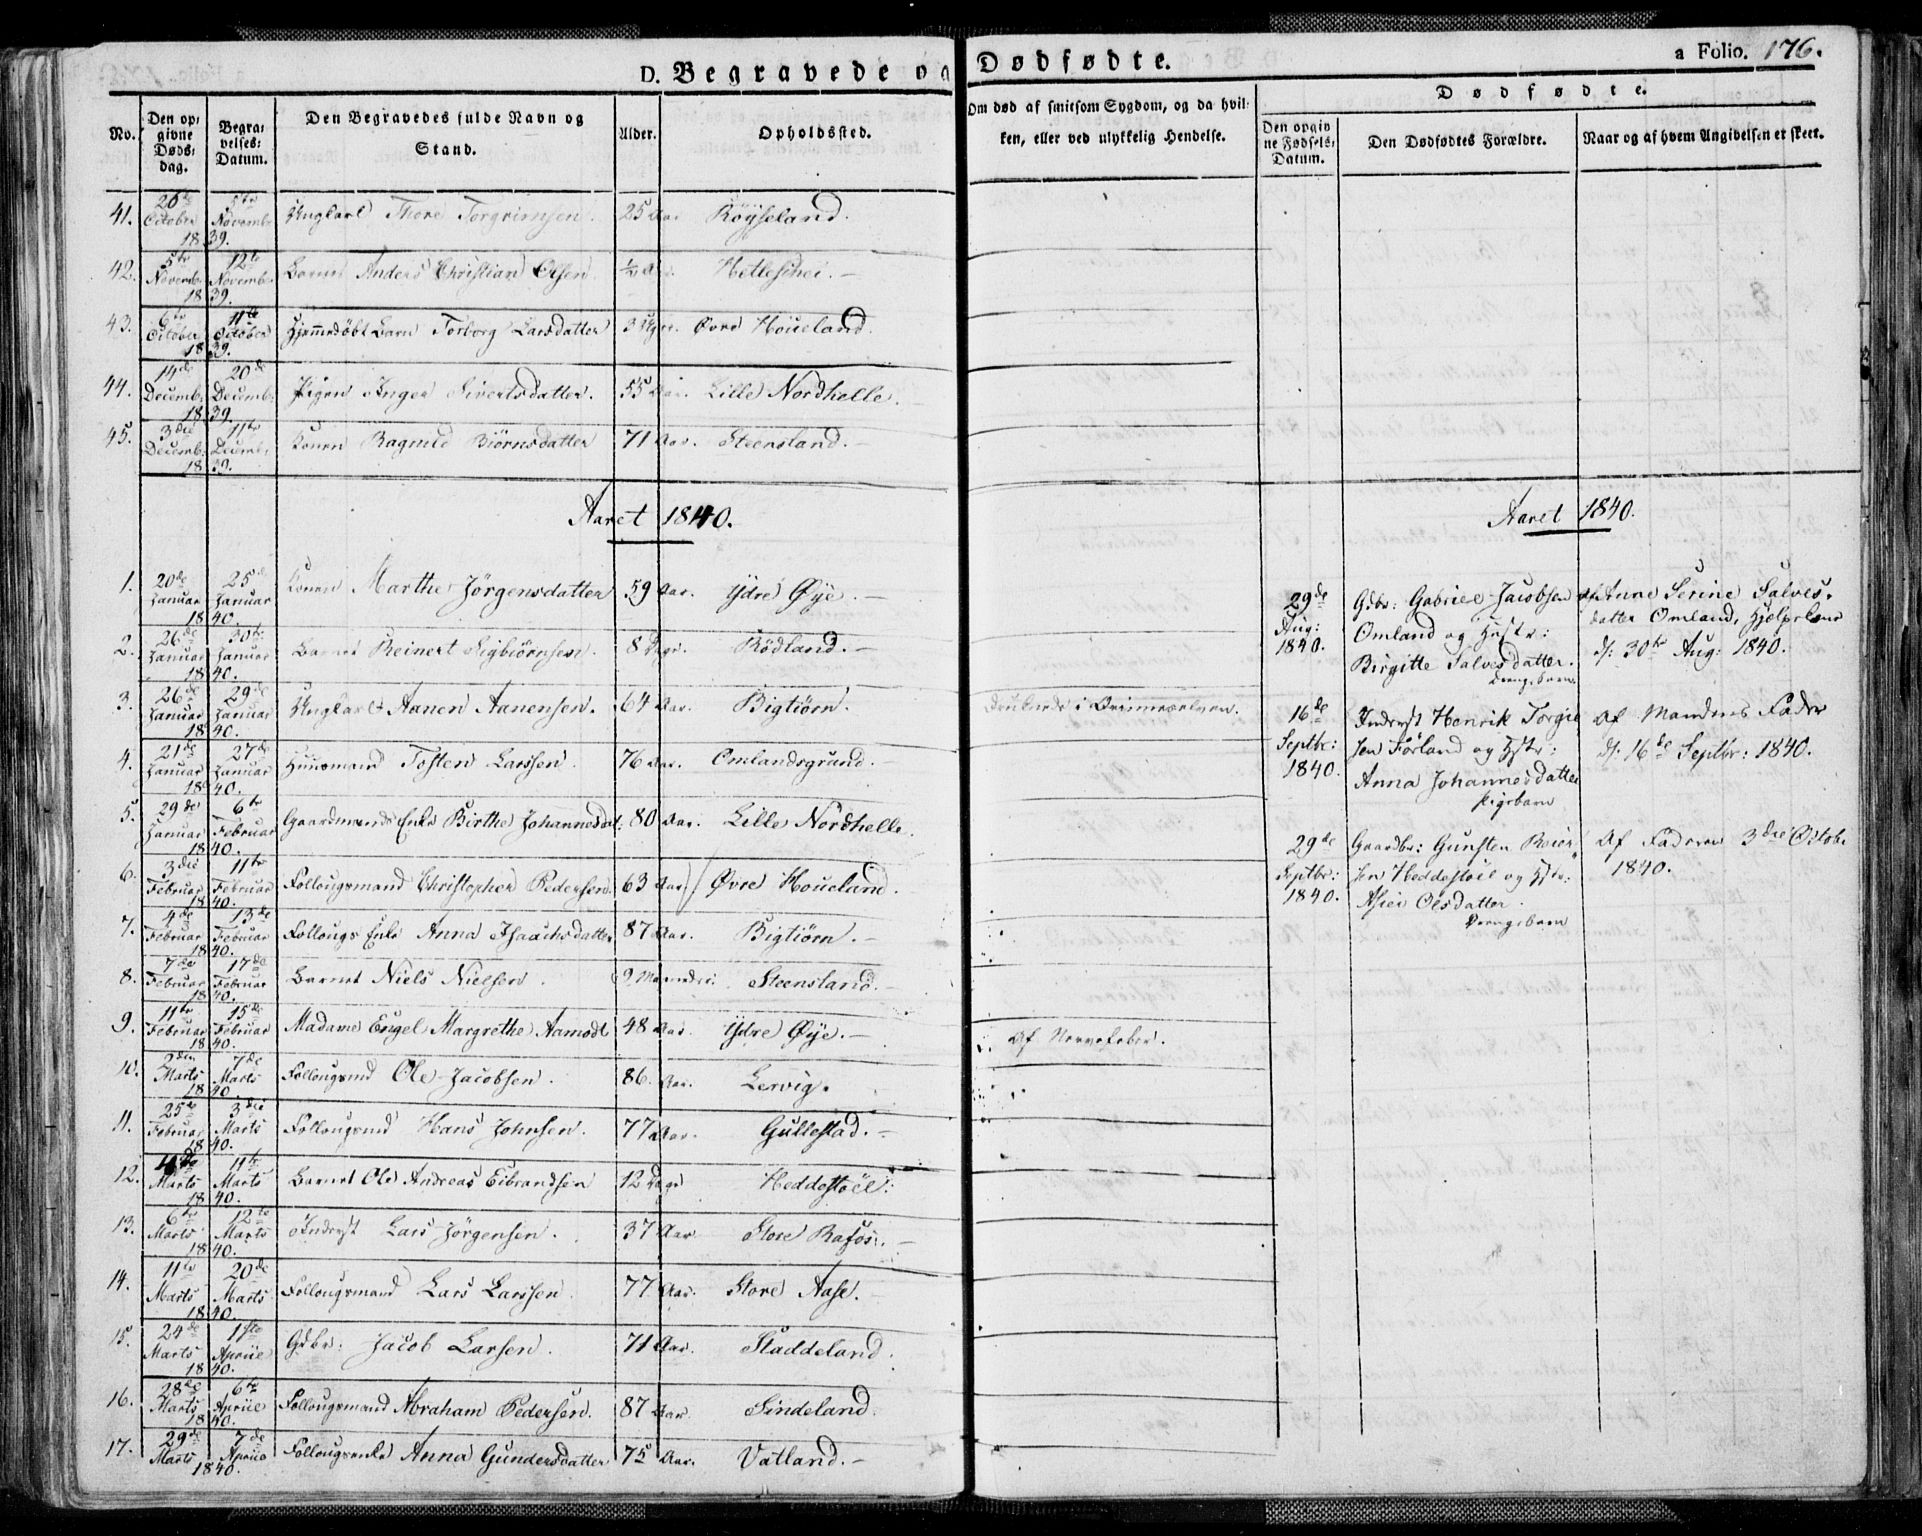 D. Begravede og Dødfødte. a Folio. 176.
No. Den opgivne Dødsdag. Begravelses-Datum. Den Begravedes fulde Navn og Stand. Alder. Opholdssted. Om død af smitsom Sygdom, og da hvilken, eller ved ulykkelig Hendelse.
Dødfødte.
Den opgivne Fødsels-Datum. Den Dødfødtes Forældre. Naar og af hvem Angivelsen er skeet.
41. 26de October 5te Novemb: 1839. Ungkarl Thore Torgrimsen. 25 Aar Röyseland.
42. 5te Novemb: 12te Novemb: 1839. Barnet Anders Christian Olsen. ½ Aar. Hetleskei.
43. 6te October 11te October 1839. Hjemmedøbt Barn Torborg Larsdatter 3 Uger. Øvre Houeland.
44. 14de Decemb: 20de Decemb: 1839. Pigen Inger Sivertsdatter. 55 Aar. Lille Nordhelle.
45. 3die Decemb: 11te Decemb: 1839. Konen Ragnild Biörnsdatter 71 Aar. Steensland.
Aaret 1840.
1. 20de Januar 25de Januar 1840. Konen Marthe Jörgensdatter 59 Aar. Ydre Øye.
2. 26de Januar 30te Januar 1840. Barnet Reinert Sigbiörnsen. 8 Dage. Rödland.
3. 26de Januar 29de Januar 1840. Ungkarl Aanen Aanensen. 64 Aar. Bigtiörn. druknede i
4. 21de Januar 27de Januar 1840. Huusmand Tosten Larssen. 76 Aar. Omlandsgrund.
5. 29de Januar 6te Februar 1840. Gaardmands Enke Birthe Johannesdat: 80 Aar. Lille Nordhelle.
6. 3die Februar 11te Februar 1840. Follougsmand Christopher Pedersen. 63 Aar Øvre Houeland.
7. 4de Februar 13de Februar 1840. Follougs Enke Anna Isaachsdatter 87 Aar. Bigtiörn.
8. 7de Februar 17de Februar 1840. Barnet Niels Nielsen. 9 Maaneder. Steensland.
9. 11te Februar 15de Februar 1840. Madame Engel Margrethe Aamodt 48 Aar Ydre Øye. Af Nervefeber.
10. 2den Marts 7de Marts 1840. Follougsmd Ole Jacobsen. 86. Aar. Lervig.
11. 25de Februar 3die Marts 1840. Follougsmd Hans Johnsen. 77 Aar. Gullestad.
12. 4de Marts 11te Marts 1840. Barnet Ole Andreas Eibrandsen 12 Dage Heddestöel.
13. 6te Marts 12te Marts 1840. Inderst Lars Jörgensen. 37 Aar. Store Rafos.
14. 11te Marts 20de Marts 1840. Follougsmand Lars Larssen. 77 Aar. Store Aase.
15. 24de Marts 1ste April 1840. Gdbr: Jacob Larsen. 71 Aar. Staddeland.
16. 28de Marts 6te April 1840. Follougsmand Abraham Pedersen. 87 Aar. Sindeland.
17. 29de Marts 7de April 1840. Follougsenke Anna Gundersdatter 75 Aar. Vatland.
Aaret 1840.
29de Aug: 1840. Gdbr: Gabriel Jacobsen Omland og Hustr: Birgitte Salvesdatter. Drengebarn. Af Anne Serine Salvesdatter Omland, Hjelpekone d: 30te Aug: 1840.
16de Septbr: 1840. Inderst Henrik Torgiesen Förland og Hstr: Anna Johannesdatter Pigebarn Af Mandens Fader d: 16de Septbr: 1840.
29de Septbr: 1840. Gaardbr: Gunsten Reiersen Heddestöel og Hstr: Asier Olsdatter. Drengebarn Af Faderen 3die Octob: 1840.